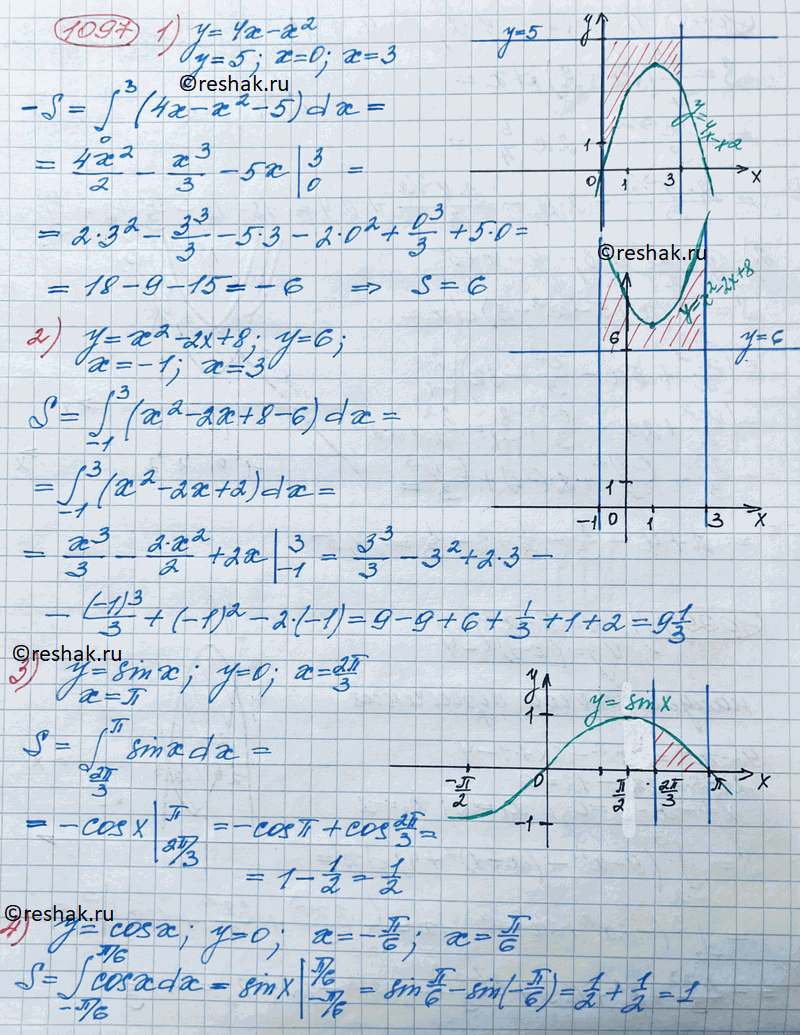 1097 1) y=4x-x²
y=5; x=0; x=3
©reshak.ru
-S = ∫₀³ (4x-x²-5)dx =
= 4x²/2 - x³/3 - 5x |₀³ =
= 2·3² - 3³/3 - 5·3 - 2·0² + 0³/3 + 5·0 =
= 18-9-15 = -6 ⇒ S=6
y
y=5
y=4x-x2
1
0 1 3 x
©reshak.ru
2) y=x²-2x+8; y=6;
x=-1; x=3
S = ∫₋₁³ (x²-2x+8-6)dx =
= ∫₋₁³ (x²-2x+2)dx =
= x³/3 - 2·x²/2 + 2x |₋₁³ = 3³/3 - 3² + 2·3 -
- (-1)³/3 + (-1)² - 2·(-1) = 9-9+6+1/3+1+2 = 9 1/3
y=x²-2x+8
6 y=6
1
-1 0 1 3 x
©reshak.ru
3) y=sinx; y=0; x=2π/3
x=π
S = ∫_{2π/3}^{π} sinxdx =
= -cosx |_{2π/3}^{π} = -cosπ + cos 2π/3 =
= 1 - 1/2 = 1/2
y
1 y=sinx
-π/2 0 π/2 2π/3 π x
-1
©reshak.ru
4) y=cosx; y=0; x=-π/6; x=π/6
S = ∫_{-π/6}^{π/6} cosxdx = sinx |_{-π/6}^{π/6} = sin π/6 - sin(-π/6) = 1/2 + 1/2 = 1